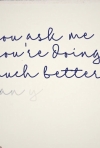 ou ask me
ou're doing
uch better
an y